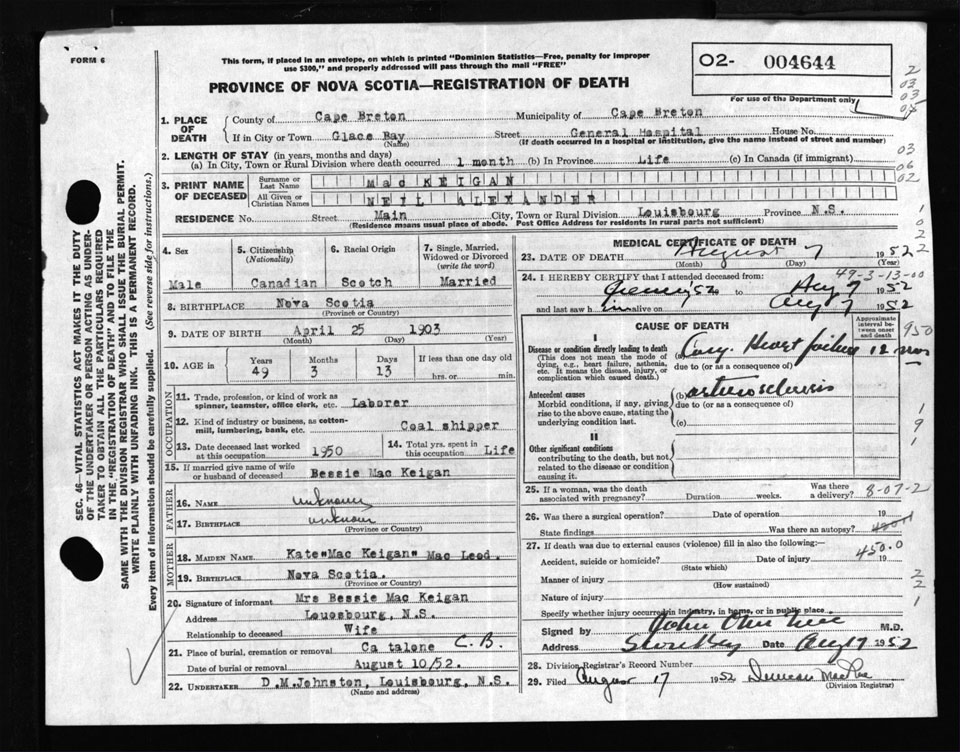 FORM 6
This form, if placed in an envelope, on which is printed "Dominion Statistics—Free, penalty for improper
use $300," and properly addressed will pass through the mail "FREE"
02- 004644
For use of the Department only
PROVINCE OF NOVA SCOTIA—REGISTRATION OF DEATH
2
03
03
03
06
02
1. PLACE OF DEATH
County of Cape Breton Municipality of Cape Breton
If in City or Town Glace Bay Street General Hospital House No.
(Name) (If death occurred in a hospital or institution, give the name instead of street and number)
2. LENGTH OF STAY (in years, months and days)
(a) In City, Town or Rural Division where death occurred 1 month (b) In Province Life (c) In Canada (if immigrant)
3. PRINT NAME OF DECEASED
Surname or Last Name MacKEIGAN
All Given or Christian Names NEIL ALEXANDER
RESIDENCE No. Street Main City, Town or Rural Division Louisbourg Province N.S.
(Residence means usual place of abode. Post Office Address for residents in rural parts not sufficient)
4. Sex
Male
5. Citizenship
(Nationality)
Canadian
6. Racial Origin
Scotch
7. Single, Married,
Widowed or Divorced
(write the word)
Married
8. BIRTHPLACE Nova Scotia
(Province or Country)
9. DATE OF BIRTH April 25 1903
(Month) (Day) (Year)
10. AGE in
Years Months Days If less than one day old
49 3 13 hrs. or min.
OCCUPATION
11. Trade, profession, or kind of work as
spinner, teamster, office clerk, etc. Laborer
12. Kind of industry or business, as cotton-
mill, lumbering, bank, etc. Coal shipper
13. Date deceased last worked
at this occupation 1950
14. Total yrs. spent in
this occupation Life
15. If married give name of wife
or husband of deceased Bessie Mac Keigan
FATHER
16. NAME unknown
17. BIRTHPLACE unknown
(Province or Country)
MOTHER
18. MAIDEN NAME. Kate"Mac Keigan" Mac Leod.
19. BIRTHPLACE Nova Scotia.
(Province or Country)
20. Signature of informant Mrs Bessie Mac Keigan
Address Louosbourg, N.S.
Relationship to deceased Wife
21. Place of burial, cremation or removal Ca talone C.B.
Date of burial or removal August 10/52.
22. UNDERTAKER D.M.Johnston, Louisbourg, N.S.
(Name and address)
MEDICAL CERTIFICATE OF DEATH
23. DATE OF DEATH August 7 1952
(Month) (Day) (Year)
49-3-13-00
24. I HEREBY CERTIFY that I attended deceased from:
to Aug 7 1952
and last saw h im alive on Aug 7 1952
CAUSE OF DEATH
Approximate
interval be-
tween onset
and death
I
Disease or condition directly leading to death
(This does not mean the mode of
dying, e.g., heart failure, asthenia,
etc. It means the disease, injury, or
complication which caused death.)
(a) Cong. Heart failure 12 mos
due to (or as a consequence of)
950
Antecedent causes
Morbid conditions, if any, giving
rise to the above cause, stating the
underlying condition last.
(b) arteriosclerosis
due to (or as a consequence of)
(c)
1
9
1
II
Other significant conditions
contributing to the death, but not
related to the disease or condition
causing it.
25. If a woman, was the death
associated with pregnancy? Duration weeks. Was there
a delivery? 8-07-2
26. Was there a surgical operation? Date of operation 19
State findings Was there an autopsy?
27. If death was due to external causes (violence) fill in also the following:—
450.0
Accident, suicide or homicide? Date of injury 19
(State which)
Manner of injury
(How sustained)
Nature of injury
2
2
1
Specify whether injury occurred in industry, in home, or in public place
Signed by M.D.
Address Date Aug 7 1952
28. Division Registrar's Record Number
29. Filed August 17 1952 Duncan MacRae
(Division Registrar)
SEC. 46—VITAL STATISTICS ACT MAKES IT THE DUTY
OF THE UNDERTAKER OR PERSON ACTING AS UNDER-
TAKER TO OBTAIN ALL THE PARTICULARS REQUIRED
IN THE "REGISTRATION OF DEATH" AND TO FILE THE
SAME WITH THE DIVISION REGISTRAR WHO SHALL ISSUE THE BURIAL PERMIT.
WRITE PLAINLY WITH UNFADING INK. THIS IS A PERMANENT RECORD.
Every item of information should be carefully supplied. (See reverse side for instructions.)